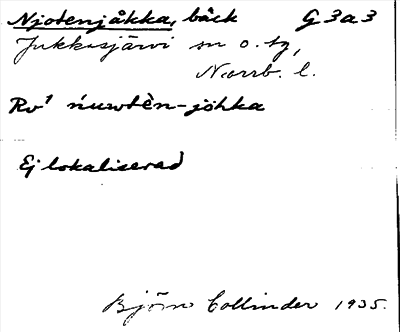 Njotenjåkka, bäck G 3 a 3
Jukkasjärvi sn o. tg,
Norrb. l.
Rv¹ ńuwtèn-jåhka
Ej lokaliserad
Björn Collinder 1935.